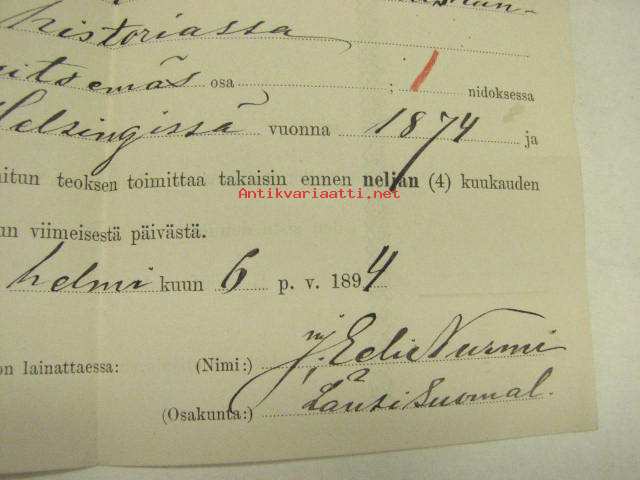 historiassa
itsemäs osa ; 1 nidoksessa
Helsingissä vuonna 1874 ja
itun teoksen toimittaa takaisin ennen neljän (4) kuukauden
Antikvariaatti.net
un viimeisestä päivästä.
helmi kuun 6 p. v. 1894
on lainattaessa: (Nimi:) J. Edv. Nurmi
(Osakunta:) Länsisuomal.